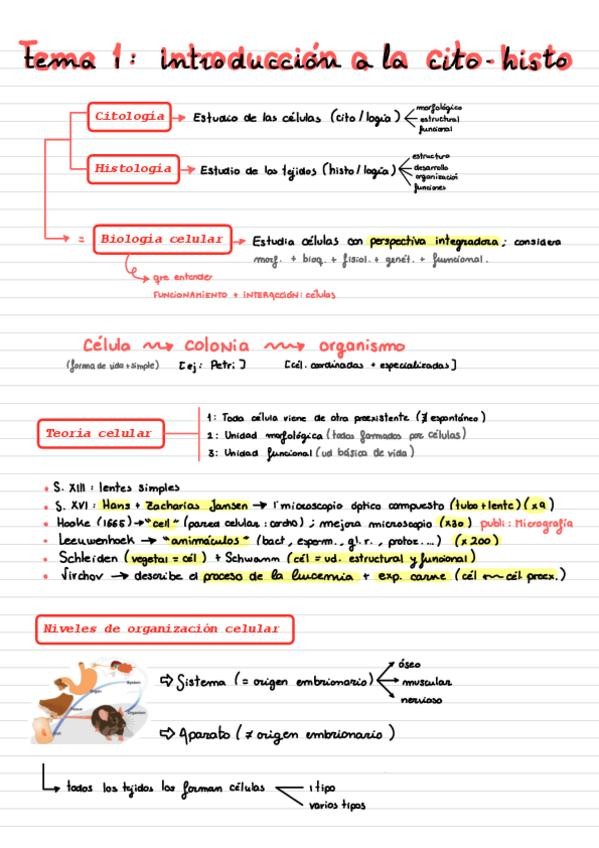 Tema 1: introducción a la cito-histo
Citología → Estudio de las células (cito/logía)
morfológico
estructural
funcional
Histología → Estudio de los tejidos (histo/logía)
estructura
desarrollo
organización
funciones
= Biología celular → Estudia células con perspectiva integradora; considera
morf. + bioq. + fisiol. + genét. + funcional.
qre entender
FUNCIONAMIENTO + INTERACCIÓN: células
Célula → colonia → organismo
(forma de vida + simple) [ej: Petri] [cél. cordinadas + especializadas]
Teoría celular
1: Toda célula viene de otra preexistente (∄ espontáneo)
2: Unidad morfológica (todos formados por células)
3: Unidad funcional (ud básica de vida)
• S. XIII: lentes simples
• S. XVI: Hans + Zacharias Jansen → 1er microscopio óptico compuesto (tubo + lente) (x9)
• Hooke (1665) → "cell" (pared celular: corcho); mejora microscopio (x30) publi: Micrografía
• Leeuwenhoek → "animáculos" (bact, esperm., gl. r., protoz....) (x200)
• Schleiden (vegetal = cél) + Schwann (cél = ud. estructural y funcional)
• Virchov → describe el proceso de la leucemia + exp. carne (cél ← cél preex.)
Niveles de organización celular
System
Organ
Tissue
Organism
Cell
⇒ Sistema (= origen embrionario)
óseo
muscular
nervioso
⇒ Aparato (≠ origen embrionario)
→ todos los tejidos los forman células
1 tipo
varios tipos